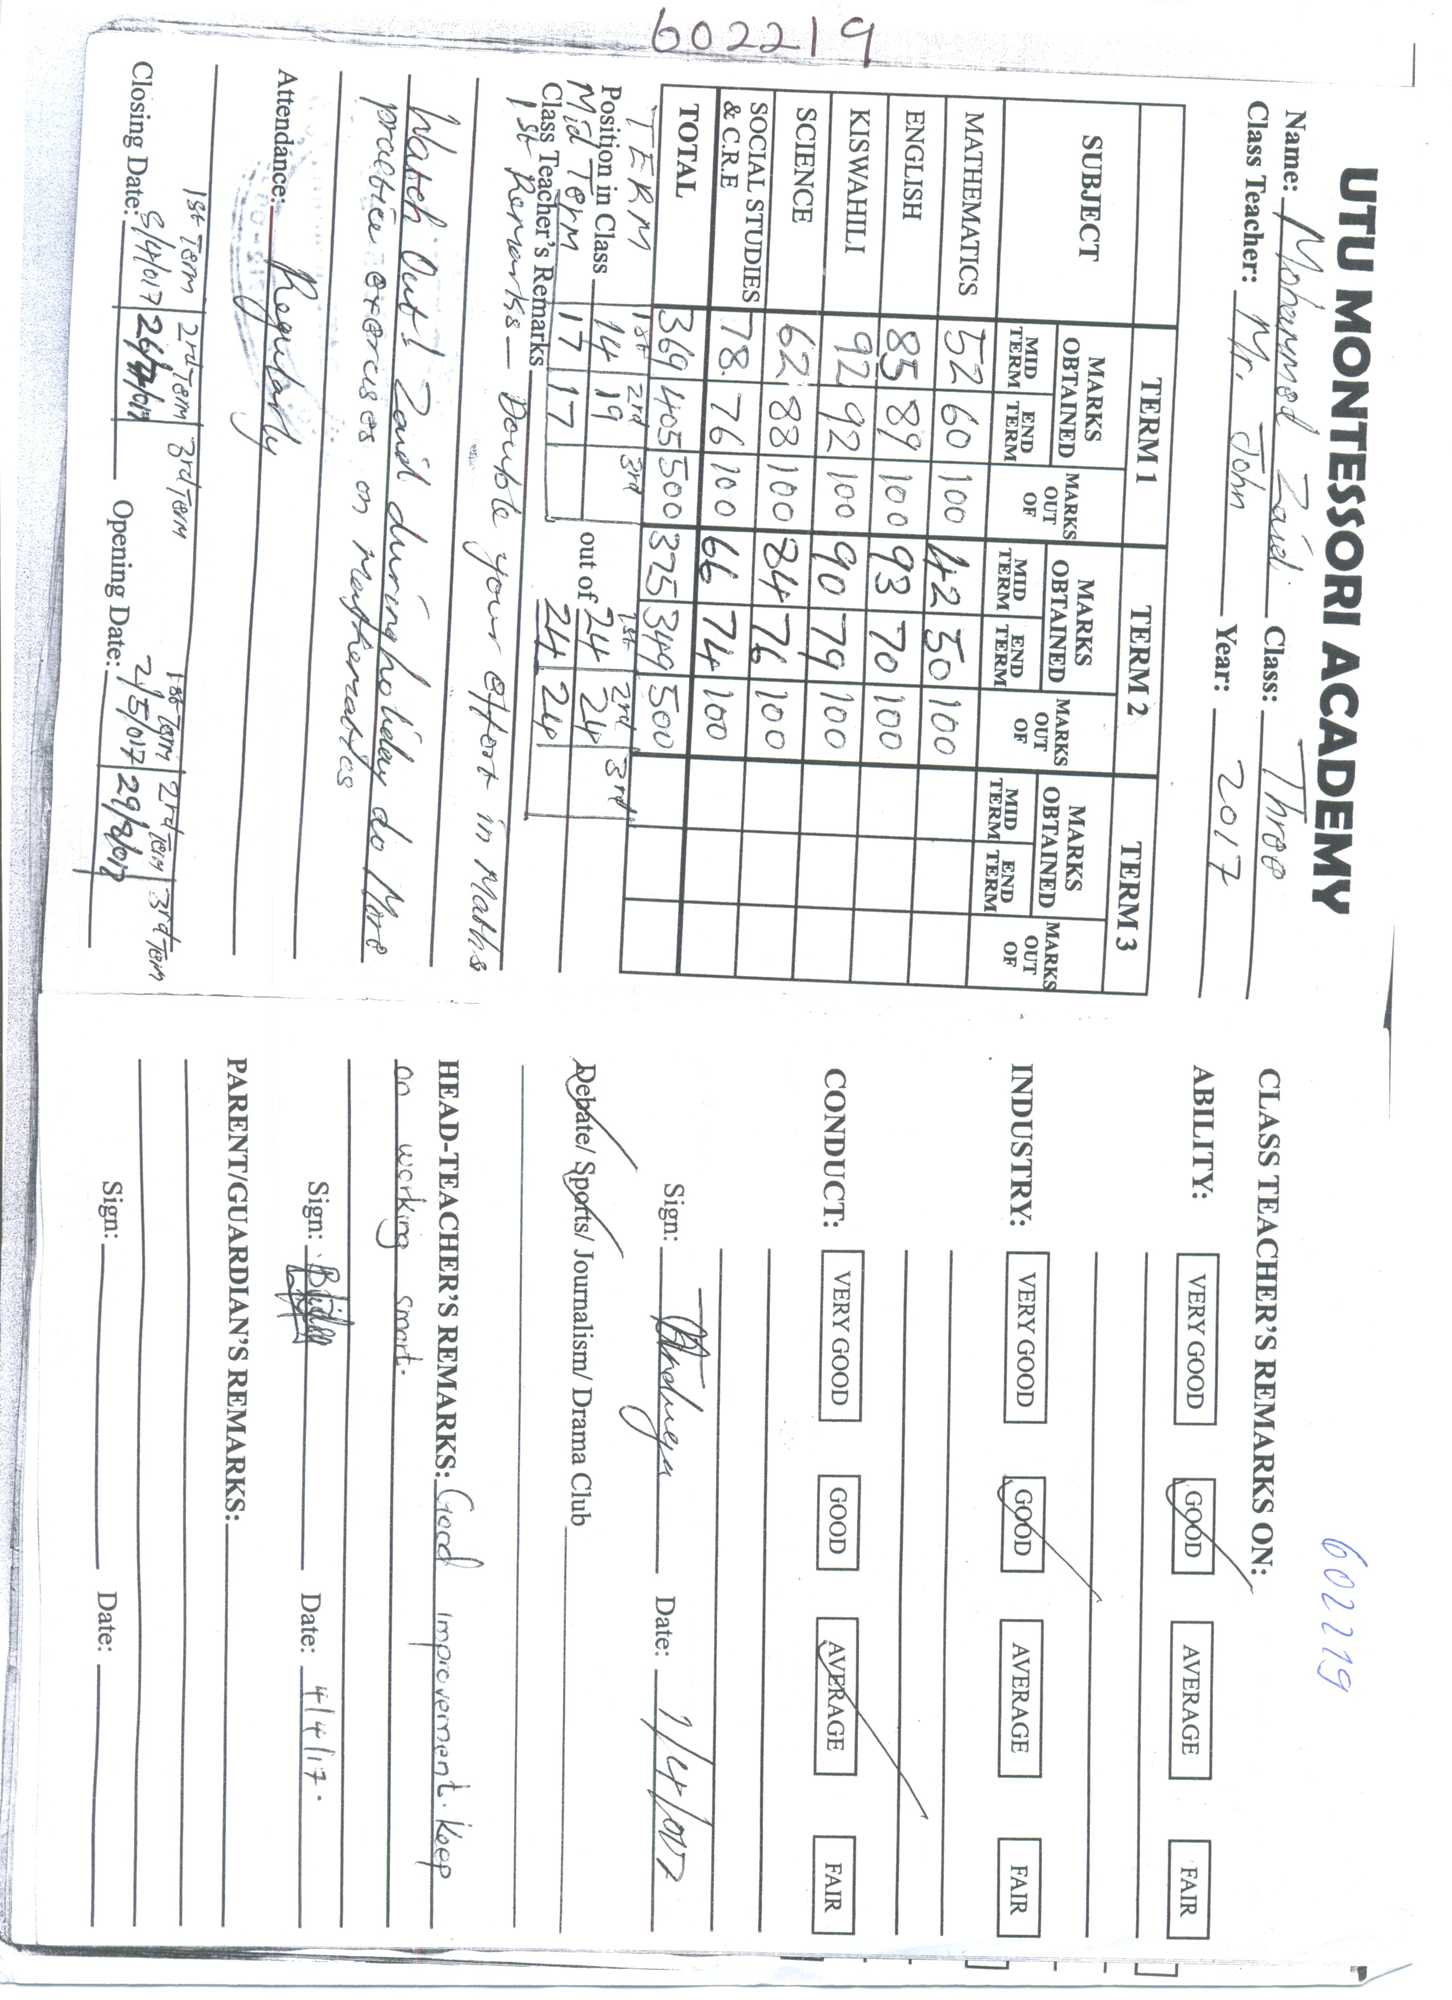 602219
UTU MONTESSORI ACADEMY
Name: Mohammed Zaidi Class: Three
Class Teacher: Mr. John Year: 2017
SUBJECT TERM 1 TERM 2 TERM 3
MARKS OBTAINED MARKS OUT OF MARKS OBTAINED MARKS OUT OF MARKS OBTAINED MARKS OUT OF
MID TERM END TERM MID TERM END TERM MID TERM END TERM
MATHEMATICS 52 60 100 42 50 100
ENGLISH 85 89 100 93 70 100
KISWAHILI 92 92 100 90 79 100
SCIENCE 62 88 100 84 76 100
SOCIAL STUDIES & C.R.E 78. 76 100 66 74 100
TOTAL 369 405 500 375 349 500
TERM 1st 2rd 3rd 1st 2rd 3rd
Position in Class 14 19 out of 24 24
Mid Term 17 17 24 24
Class Teacher's Remarks
1st Remarks - Double your effort in Maths
Watch Out! Zaid during holiday do More
practice exercises on Mathematics
Attendance: Regularly
1st Term 2rd Term 3rd Term 1st Term 2rd Term 3rd Term
Closing Date: 5/4/017 26/7/017 Opening Date: 2/5/017 29/8/017
602219
CLASS TEACHER'S REMARKS ON:
ABILITY: VERY GOOD GOOD AVERAGE FAIR
INDUSTRY: VERY GOOD GOOD AVERAGE FAIR
CONDUCT: VERY GOOD GOOD AVERAGE FAIR
Sign: Date: 1/4/017
Debate/ Sports/ Journalism/ Drama Club
HEAD-TEACHER'S REMARKS: Good improvement. Keep
on working smart.
Sign: Date: 4/4/17.
PARENT/GUARDIAN'S REMARKS:
Sign: Date: